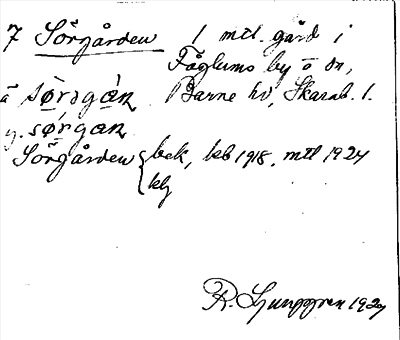 7 Sörgården 1 mtl. gård i
Fåglums by o sn,
Barne hd, Skarab. l.
å sö̀rᵊgàn
y. sörgan
Sörgården { bek, kb 1918, mtl 1924
kbg
R. Ljunggren 1927